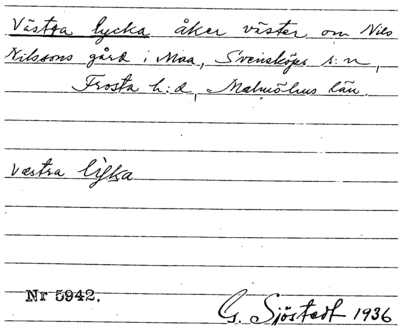 Västra lycka åker väster om Nils
Nilssons gård i Maa, Svensköps s:n,
Frosta h:d, Malmöhus län.
væstra lykka
Nr 5942.
G. Sjöstedt 1936